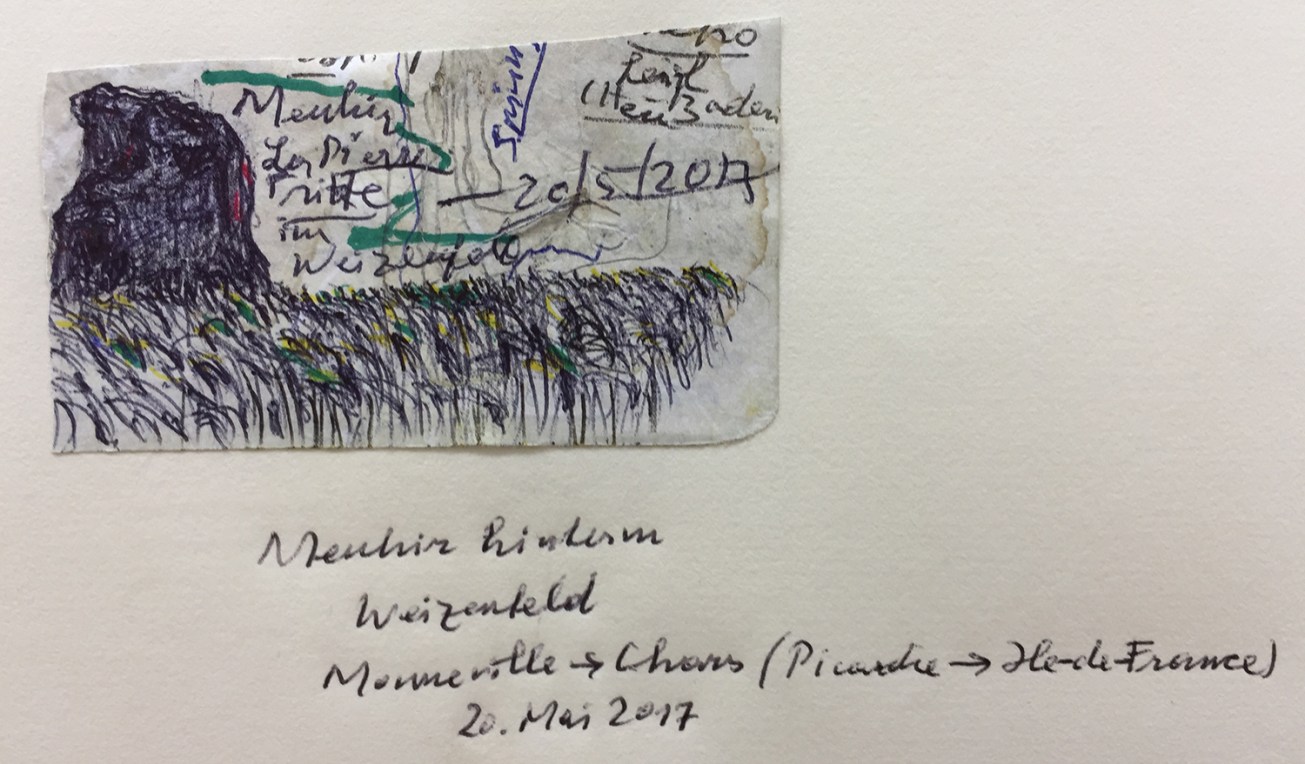 Menhir
La Pierre
Fritte
im
Weizenfeld
20/5/2017
Menhir hinterm
Weizenfeld
Monneville → Chars (Picardie → Ile-de-France)
20. Mai 2017